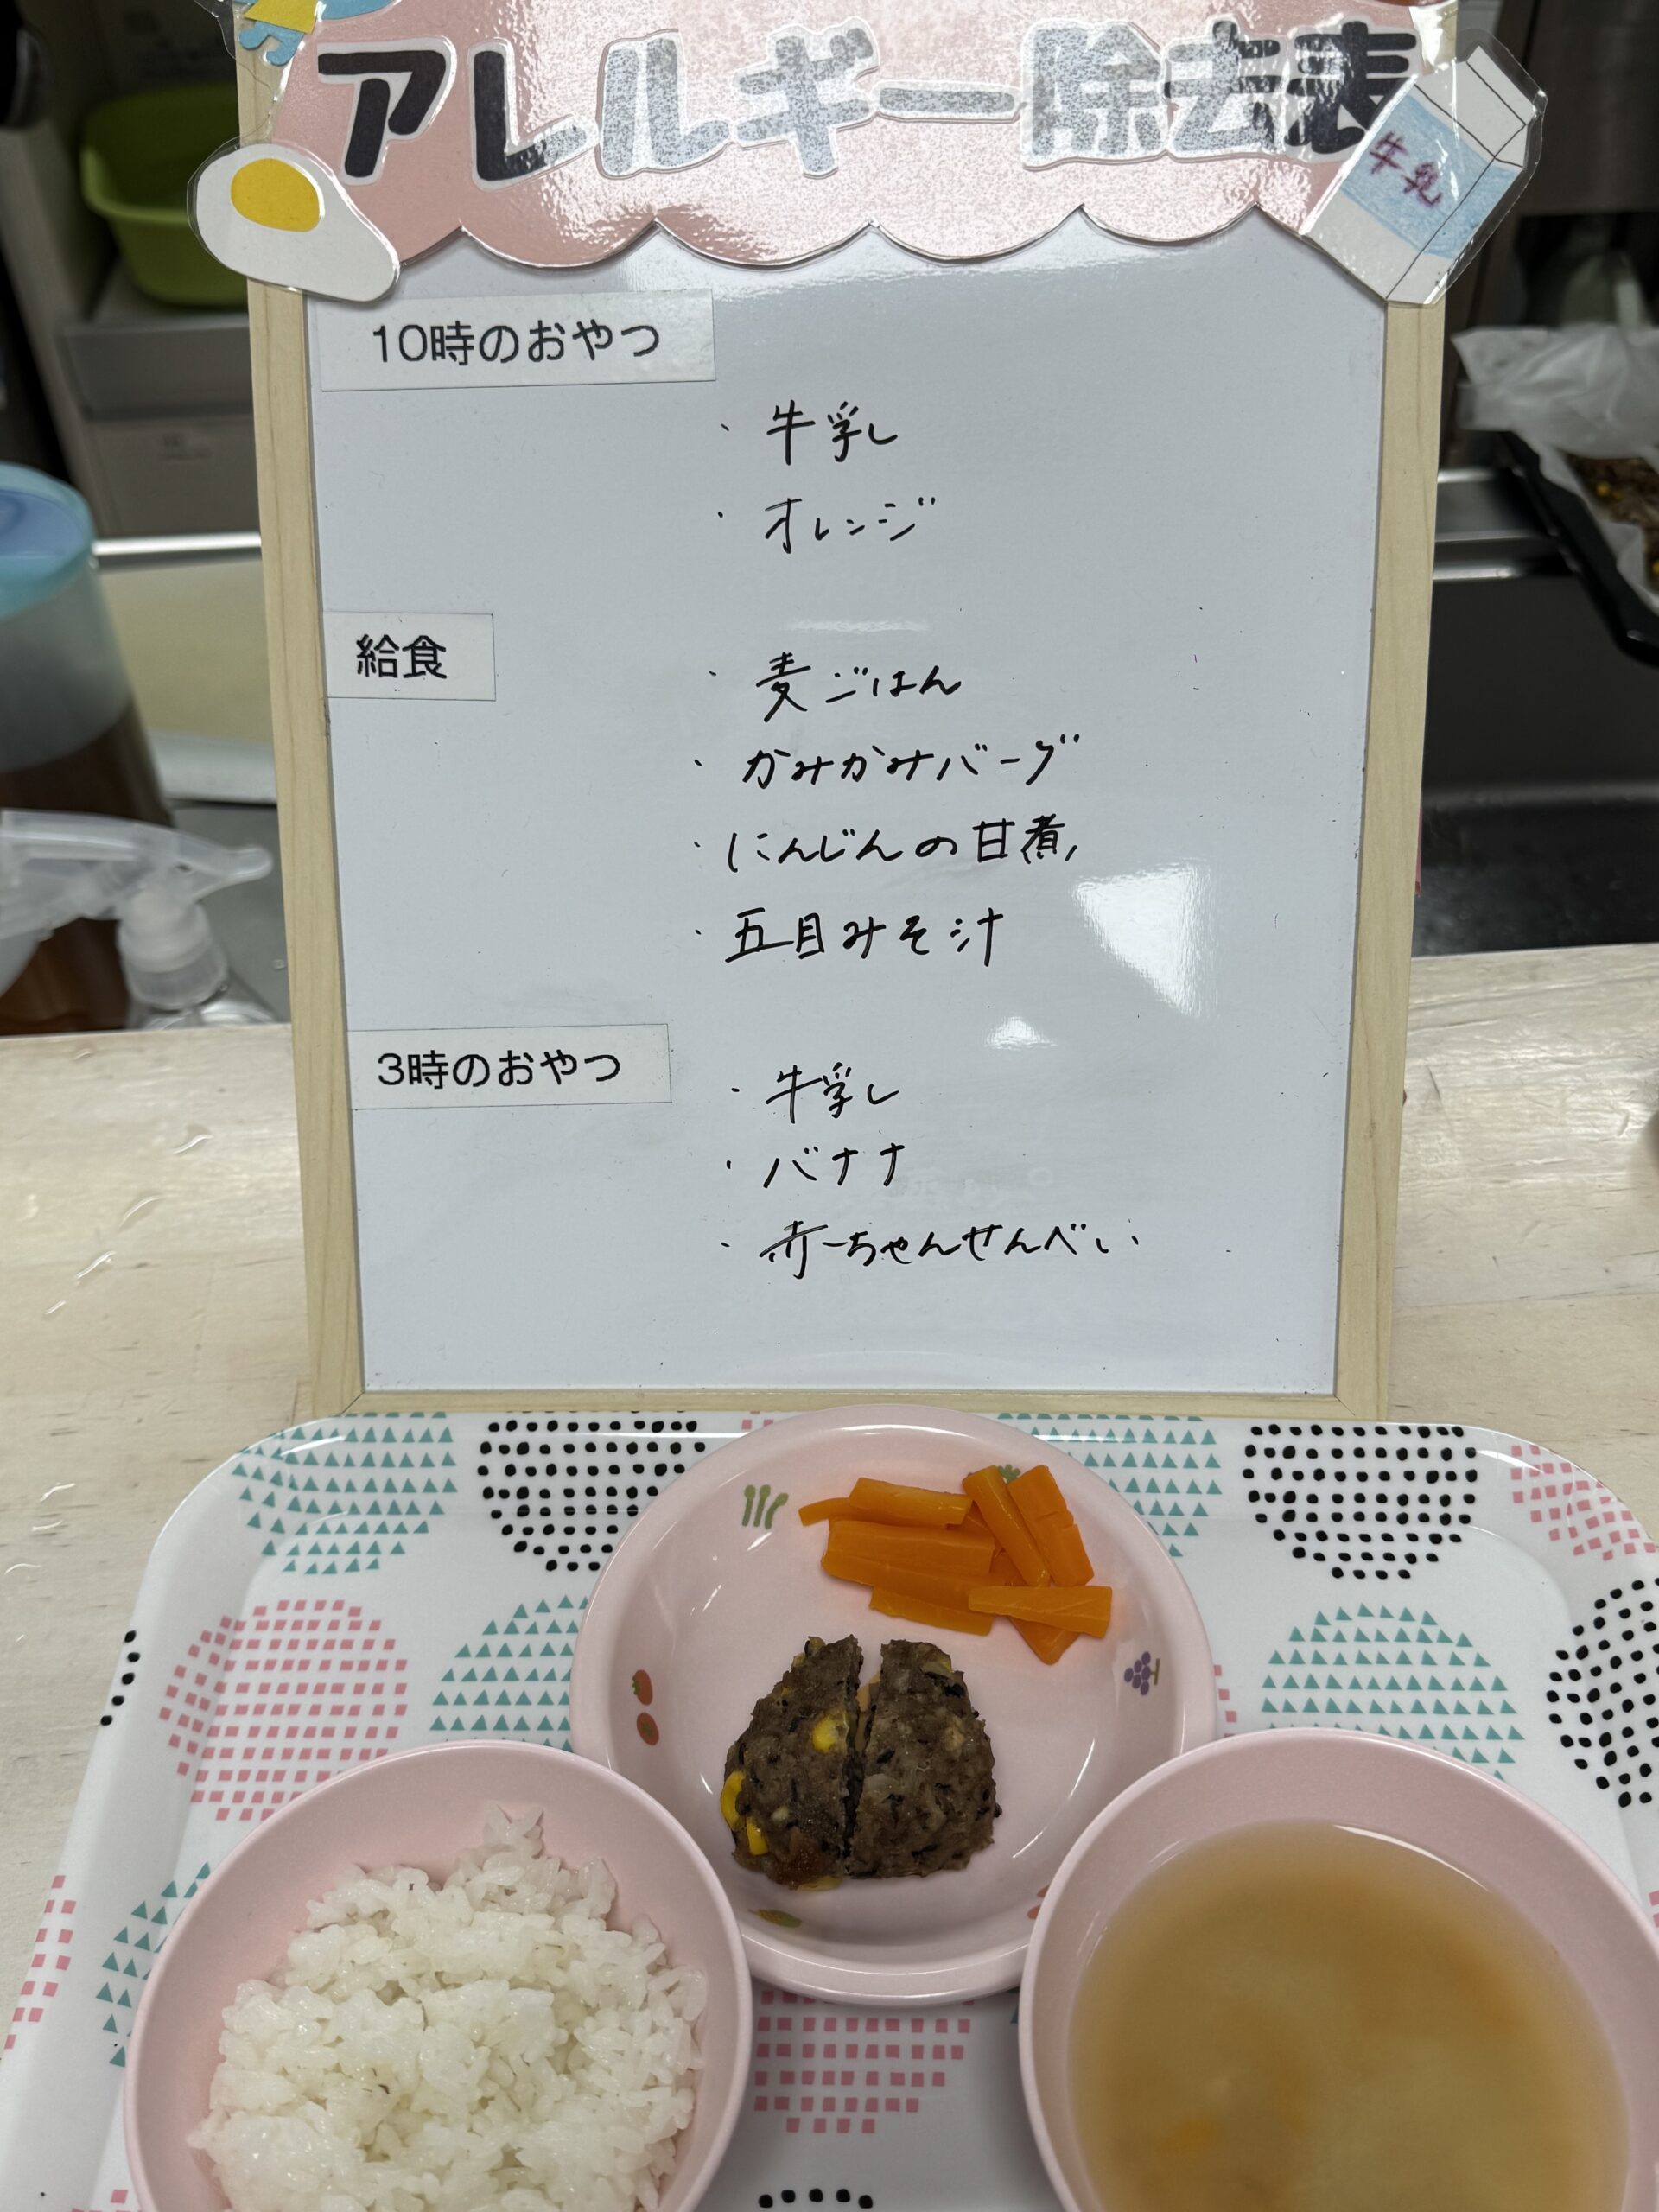 アレルギー除去表
牛乳
10時のおやつ
・牛乳
・オレンジ
給食
・麦ごはん
・かみかみバーグ
・にんじんの甘煮
・五目みそ汁
3時のおやつ
・牛乳
・バナナ
・赤ちゃんせんべい